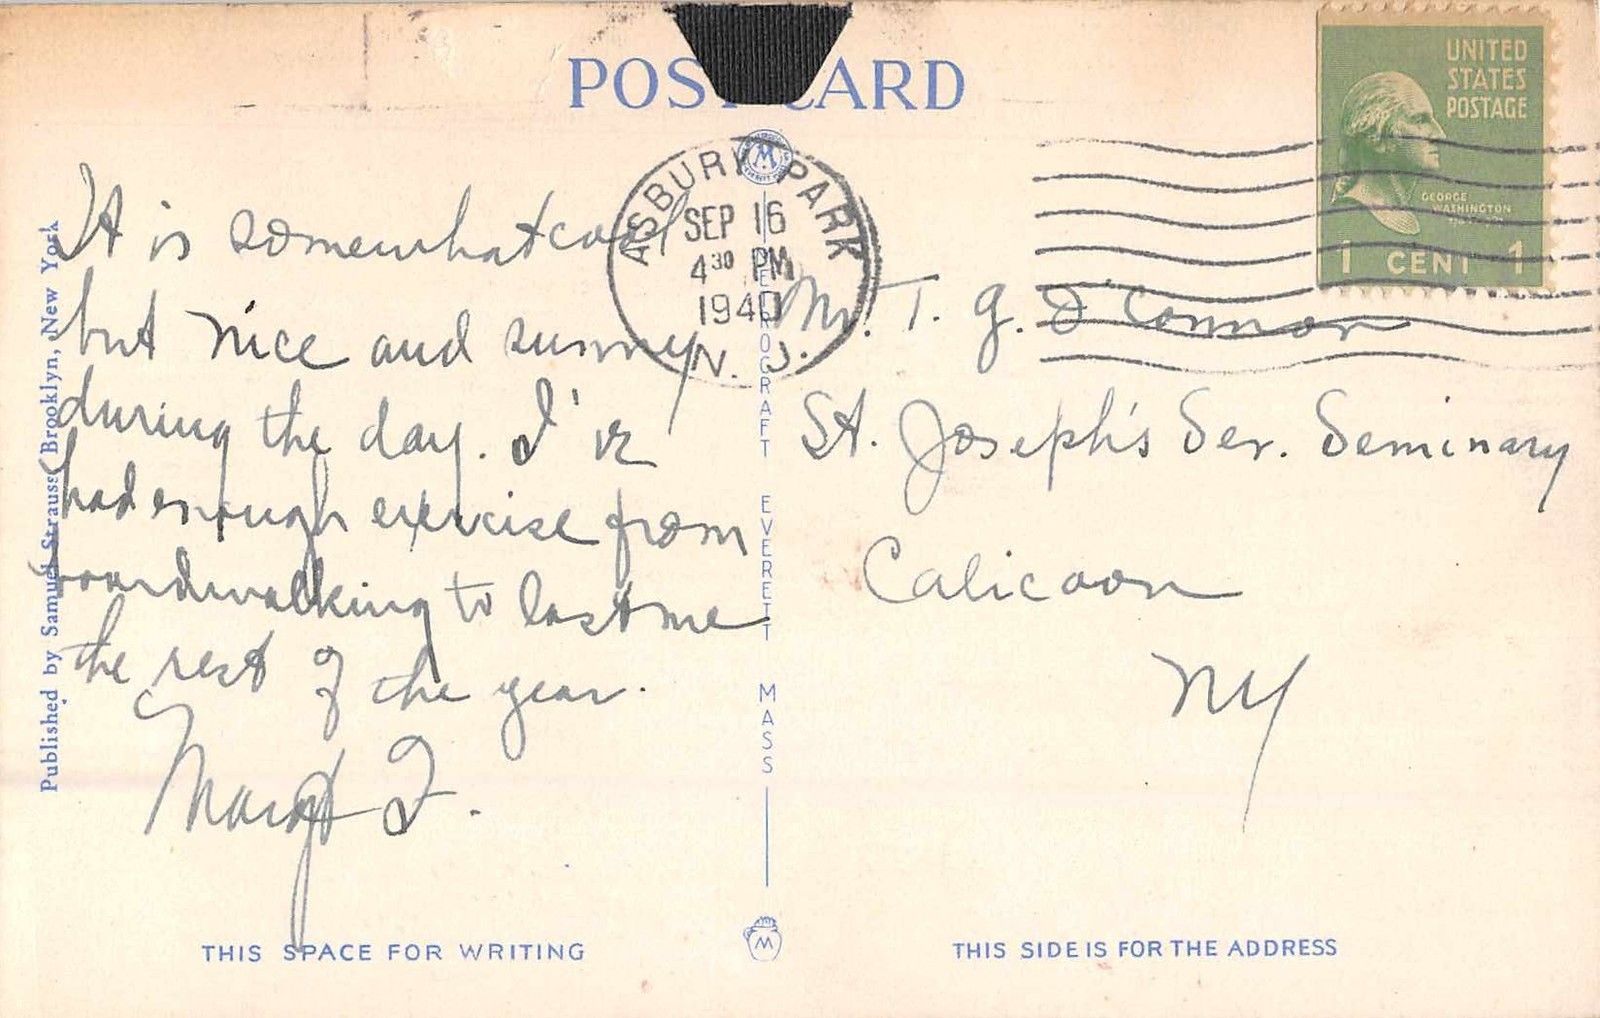 POST CARD
UNITED
STATES
POSTAGE
GEORGE
WASHINGTON
1 CENT 1
ASBURY PARK
SEP 16
4 30 PM
1940
N. J.
It is somewhat cool
but nice and sunny
during the day. I've
had enough exercise from
boardwalking to last me
the rest of the year.
Margt F.
Mr. T. G. O'Connor
St. Joseph's Ser. Seminary
Calicoon
NY
Published by Samuel Strauss, Brooklyn, New York
EVERETT MASS
THIS SPACE FOR WRITING
M
THIS SIDE IS FOR THE ADDRESS